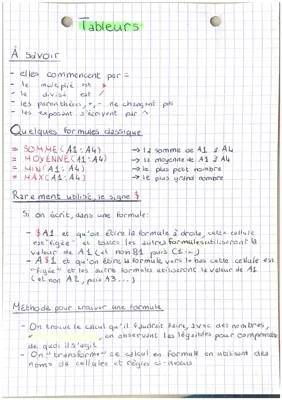 Tableurs
À savoir
- elles commencent par =
- le multiplié est *
- le divisé est /
- les parenthèses, +, - ne changent pas
- les exposant s'écrivent par ^
Quelques formules classique
= SOMME(A1:A4) → la somme de A1 à A4
= MOYENNE(A1:A4) → la moyenne de A1 à A4
= MIN(A1:A4) → le plus petit nombre
= MAX(A1:A4) → le plus grand nombre
Rarement utilisé, le signe $
Si on écrit, dans une formule:
- $A1 et qu'on étire la formule à droite, cette cellule
est "figée" et toutes les autres formules utiliseront la
valeur de A1 (et non B1 puis C1...)
- A$1 et qu'on étire la formule vers le bas cette cellule est
"figée" et les autre formules utiliseront la valeur de A1
(et non A2, puis A3...)
Méthode pour trouver une formule
- On trouve le calcul qu'il faudrait faire, avec des nombres,
en observant les légendes pour comprendre
de quoi il s'agit
- On "transforme" ce calcul en formule en utilisant des
noms de cellules et règles ci-dessus